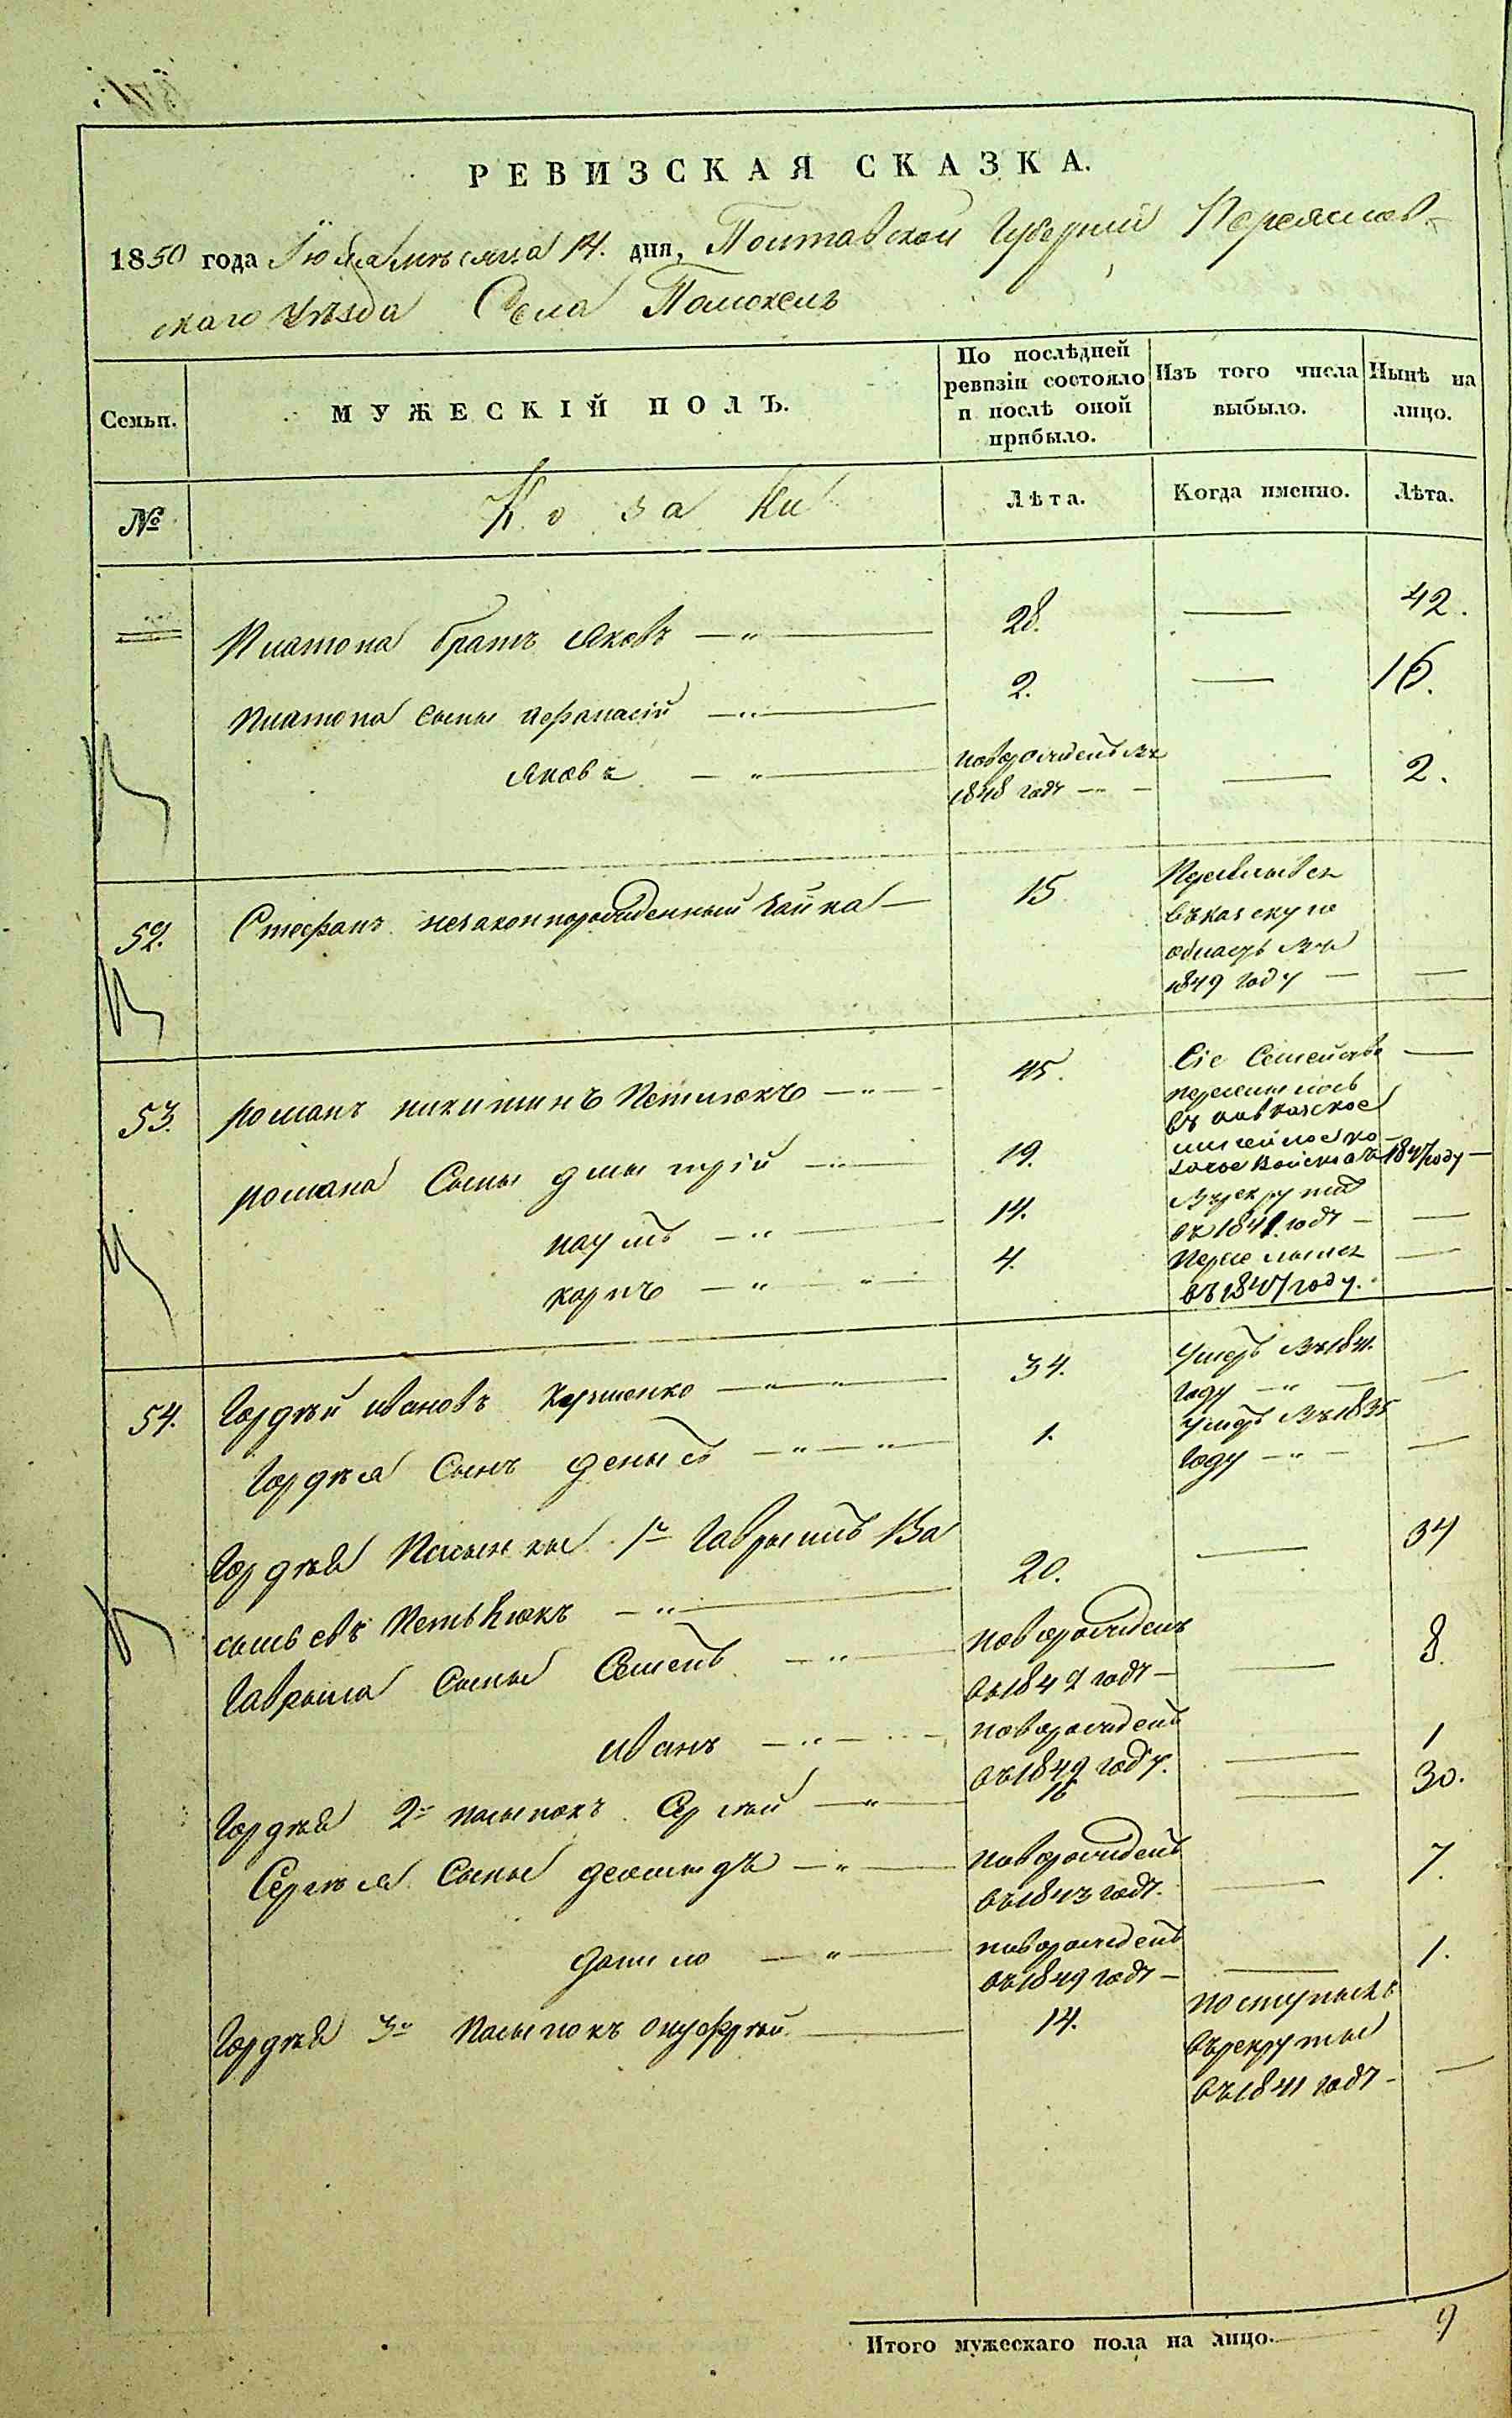 РЕВИЗСКАЯ СКАЗКА.
1850 года Іюля мѣсяца 14. дня, Полтавской Губерніи Переяслав-
скаго уѣзда Села Помоклъ
Семьи.
МУЖЕСКІЙ ПОЛЪ.
По послѣдней ревизіи состояло и послѣ оной прибыло.
Изъ того числа выбыло.
Нынѣ на лицо.
№
Козаки
Лѣта.
Когда именно.
Лѣта.
Платона братъ Яковъ — 28. — 42.
Платона сыны Афанасій — 2. — 16.
Яковъ — новорожденъ въ
1848 годѣ — — 2.
52. Стефанъ незаконнорожденный Чайка — 15
въ
область въ
1849 году —
53. Романъ Никитинъ Петлюкъ — 45. Сіе Семейство
переселилось
въ кавказское
линейное ко-
зачое Войско въ 1847 году —
Романа Сыны Дмытрій — 19.
Наумъ — 14. въ рекруты
въ 1841 годѣ —
Карпъ — 4.
въ 1847 году.
54. Гордѣй Ивановъ — 34. Умеръ въ 1841.
году —
Гордѣя Сынъ Денысъ — 1. Умеръ въ 1835
году —
Гордѣя Пасынки 1й Гаврыилъ Ва
сыльевъ — 20. — 34
Гаврыила Сыны Семенъ — новорожденъ
въ 1842 годѣ — — 8.
Иванъ — новорожденъ
въ 1849 году. — 1
Гордѣя 2й пасынокъ Сергѣй — 16 — 30.
Сергѣя Сыны Деомидъ — новорожденъ
въ 1843 годѣ. — 7.
Данило — новорожденъ
въ 1849 годѣ — — 1.
Гордѣя 3й Пасынокъ Онуфрѣй. — 14. поступилъ
въ рекруты
въ 1841 годѣ —
Итого мужескаго пола на лицо. 9